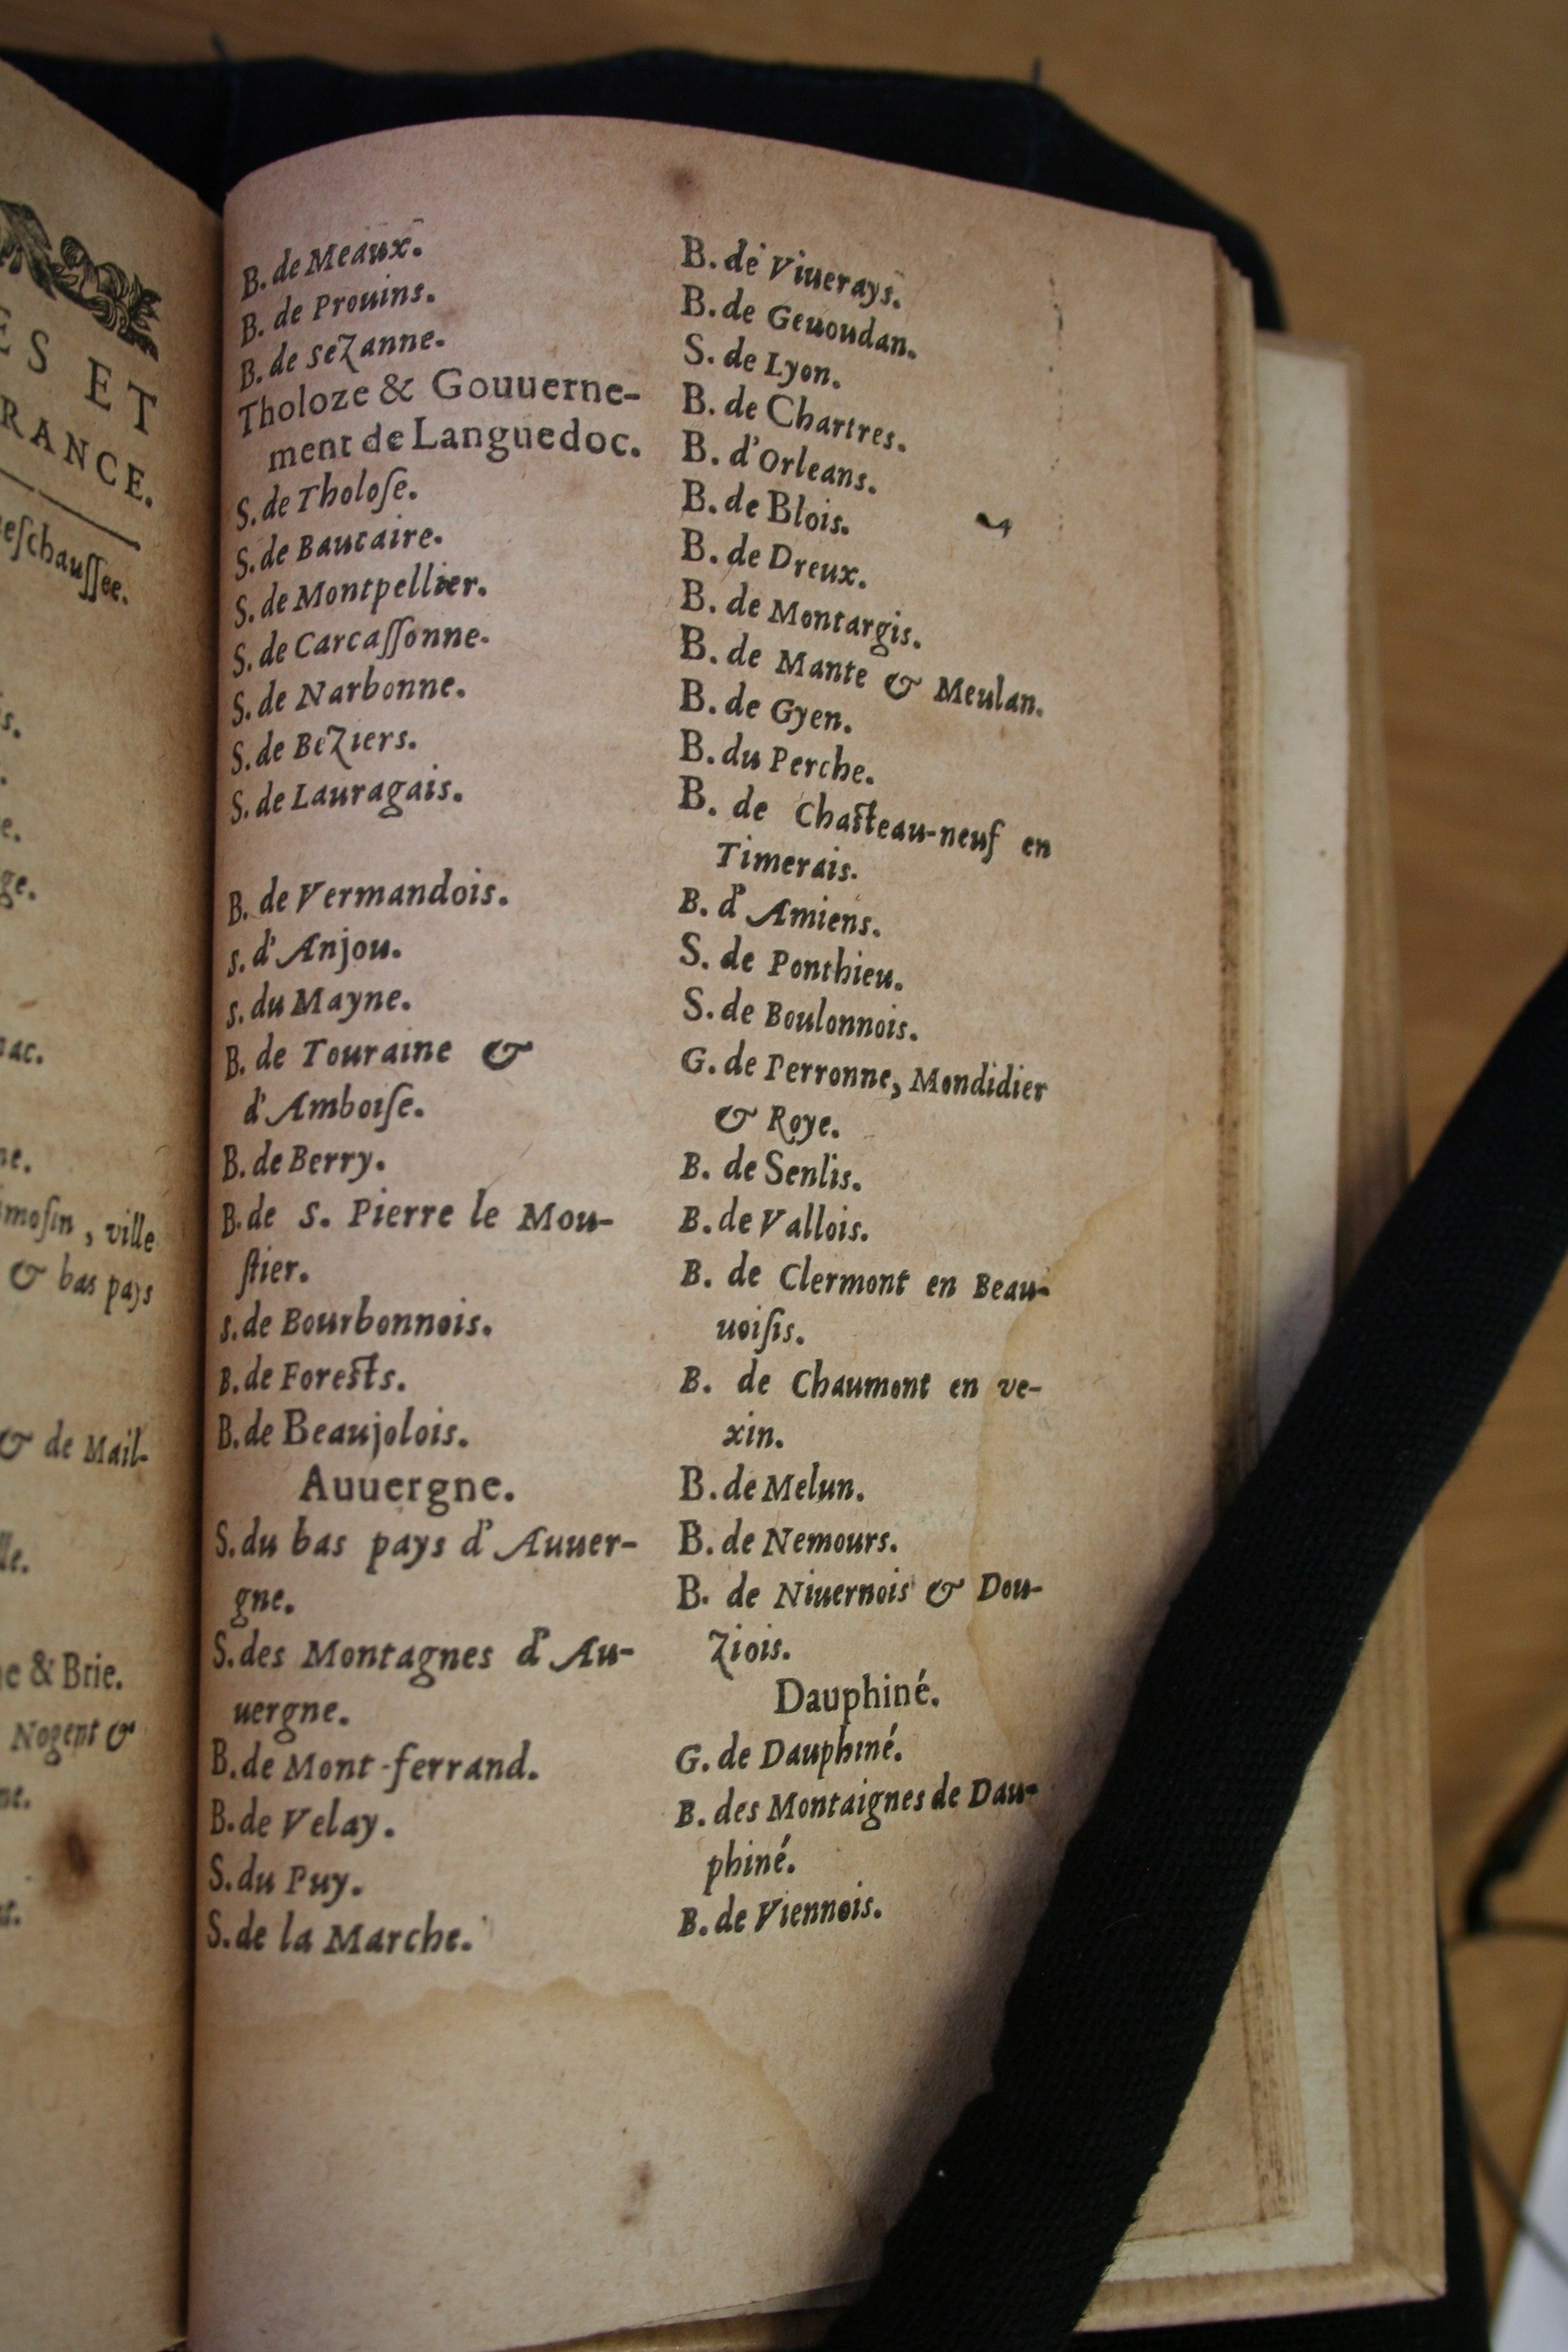 ES ET
RANCE.
eſchauſſee.
moſin, ville
& bas pays
& de Mail-
& Brie.
Nogent &
B. de Meaux.
B. de Prouins.
B. de seZanne.
Tholoze & Gouuerne-
ment de Languedoc.
S. de Tholoſe.
S. de Baucaire.
S. de Montpellier.
S. de Carcaſſonne.
S. de Narbonne.
S. de BeZiers.
S. de Lauragais.
B. de Vermandois.
s. d'Anjou.
s. du Mayne.
B. de Touraine &
d'Amboiſe.
B. de Berry.
B. de S. Pierre le Mou-
ſtier.
s. de Bourbonnois.
B. de Foreſts.
B. de Beaujolois.
Auuergne.
S. du bas pays d'Auuer-
gne.
S. des Montagnes d'Au-
uergne.
B. de Mont-ferrand.
B. de Velay.
S. du Puy.
S. de la Marche.
B. de Viuerays.
B. de Geuoudan.
S. de Lyon.
B. de Chartres.
B. d'Orleans.
B. de Blois.
B. de Dreux.
B. de Montargis.
B. de Mante & Meulan.
B. de Gyen.
B. du Perche.
B. de Chaſteau-neuf en
Timerais.
B. d'Amiens.
S. de Ponthieu.
S. de Boulonnois.
G. de Perronne, Mondidier
& Roye.
B. de Senlis.
B. de Vallois.
B. de Clermont en Beau-
uoiſis.
B. de Chaumont en ve-
xin.
B. de Melun.
B. de Nemours.
B. de Niuernois & Dou-
Ziois.
Dauphiné.
G. de Dauphiné.
B. des Montaignes de Dau-
phiné.
B. de Viennois.